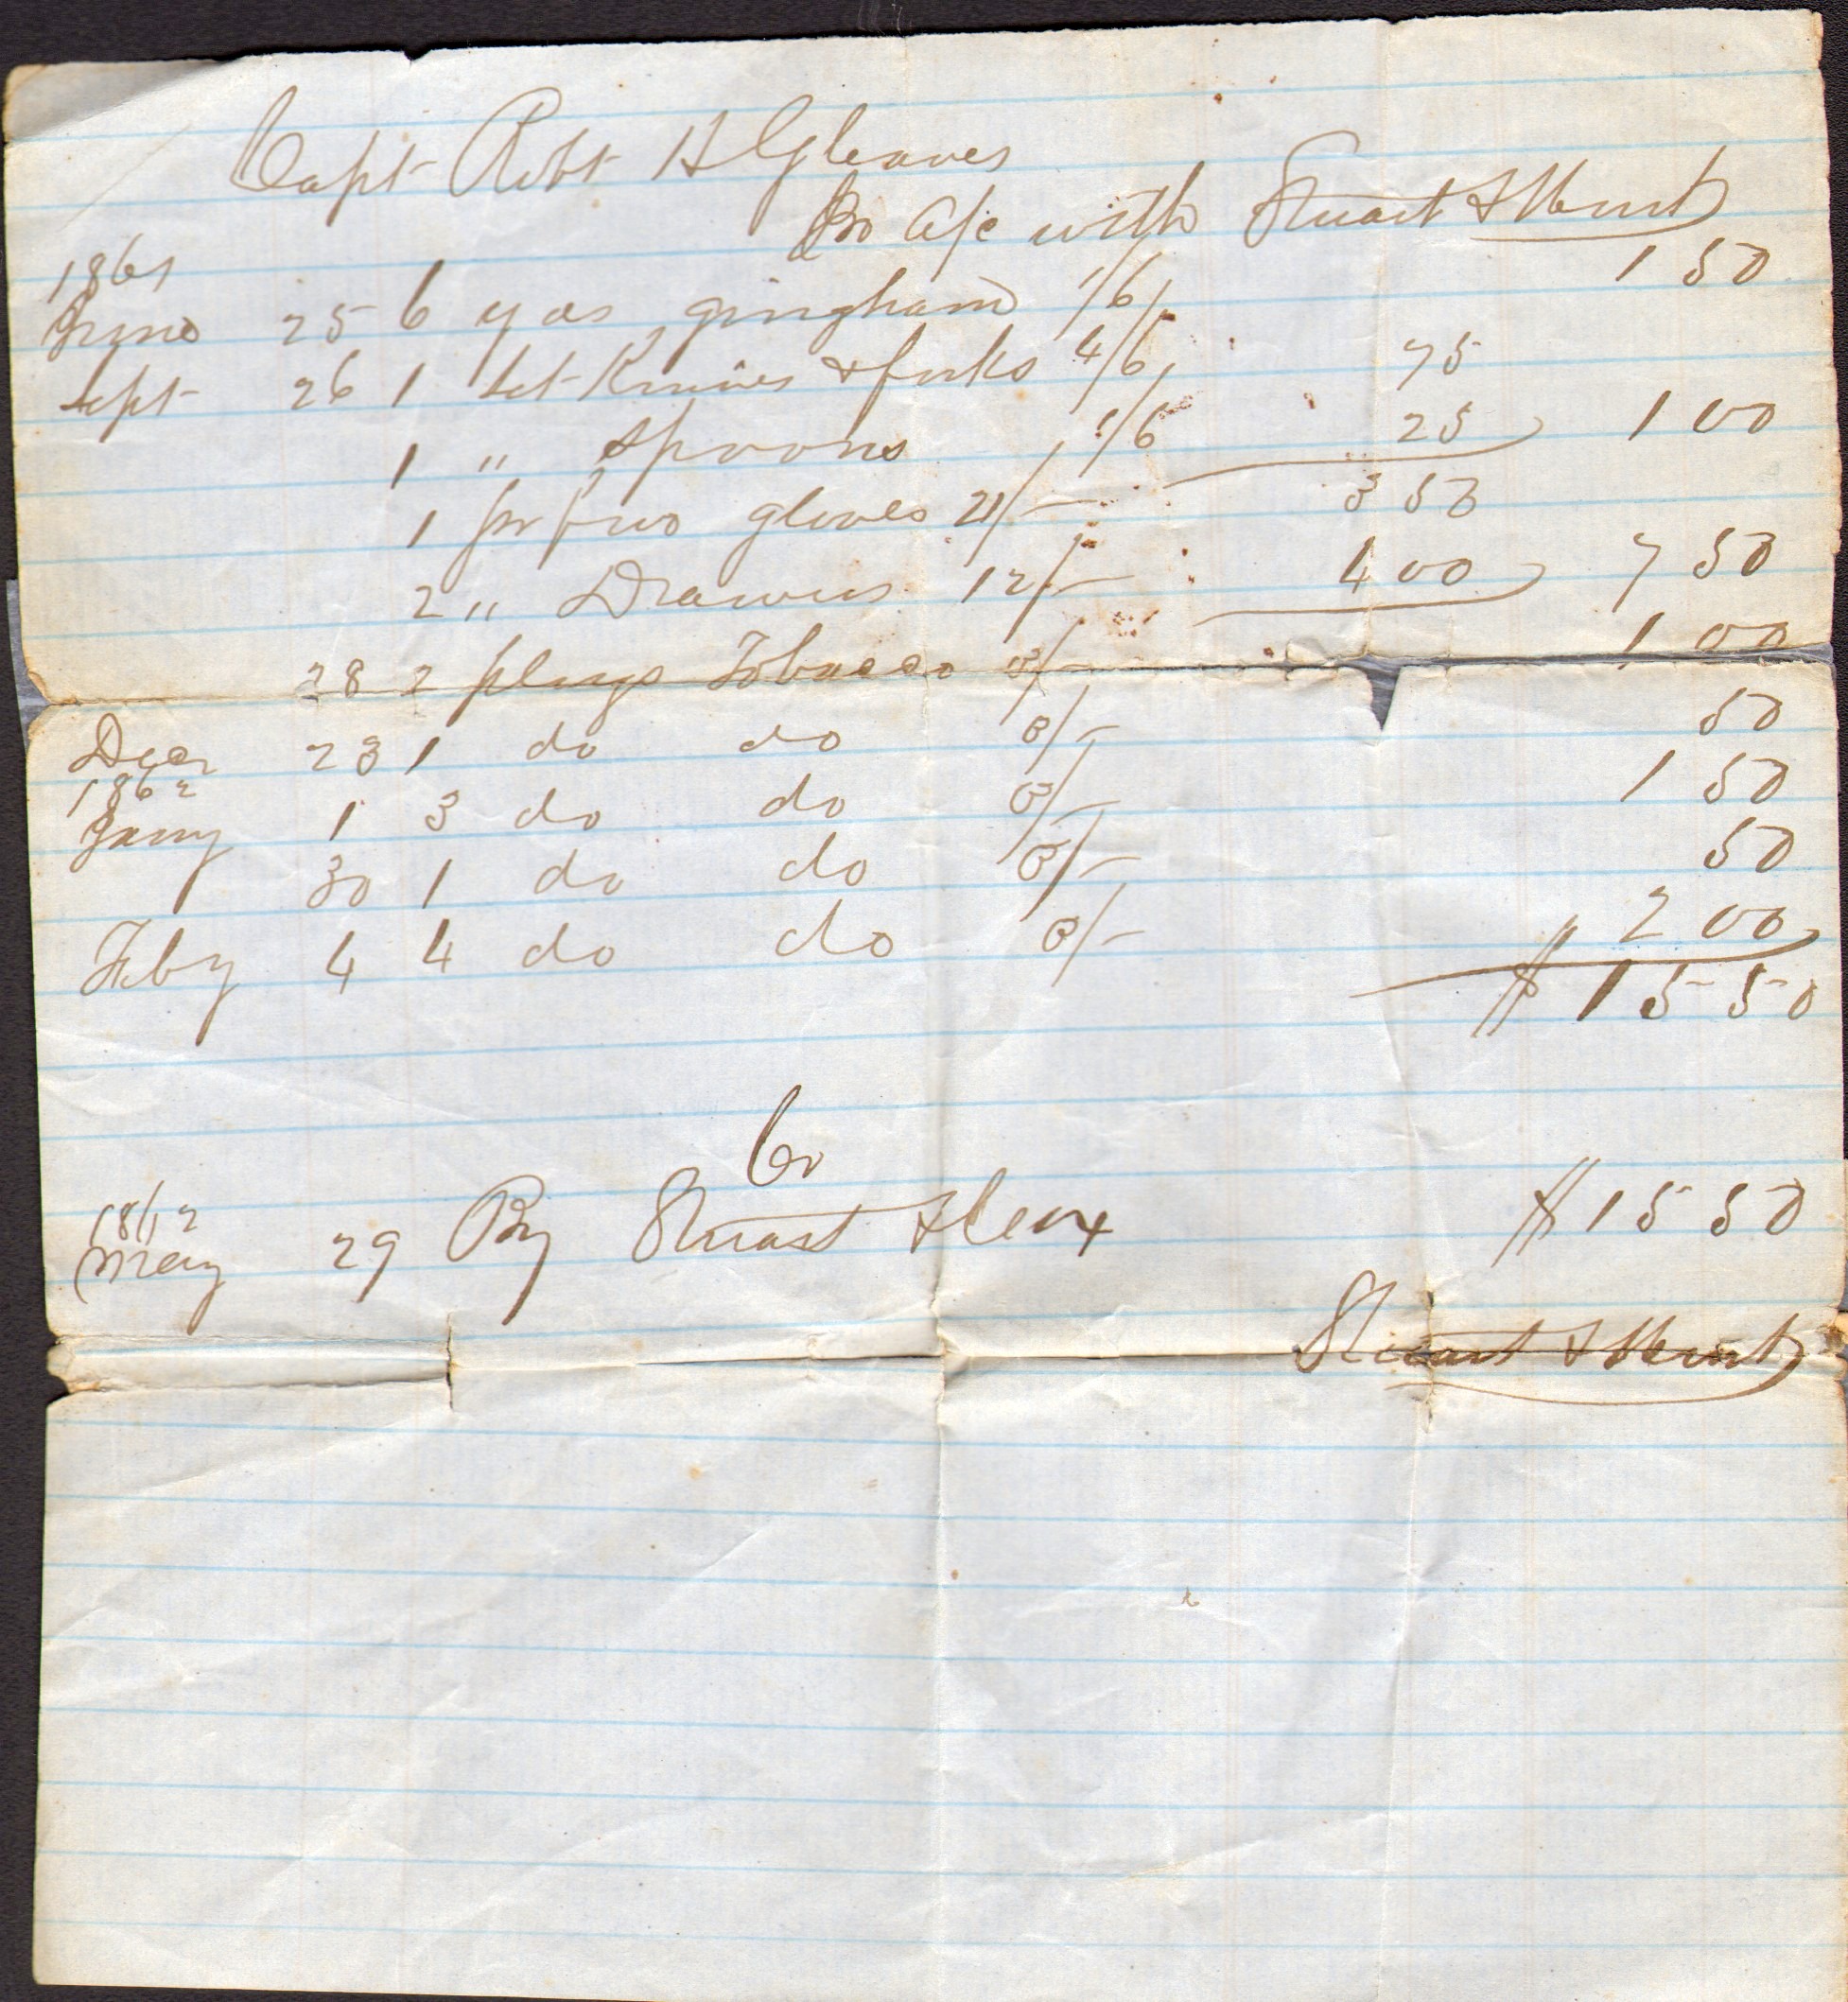 Capt Robt H Gleaves
In a/c with Stuart &
1861
June 25 6 yds gingham 1/6 1 50
Sept 26 1 Set Knives & forks 4/6 75
1 " Spoons 1/6 25 1 00
1 pr fur gloves 21/- 3 50
2 " Drawers 12/- 4 00 7 50
28 2 plugs Tobacco 3/- 1 00
Decr 23 1 do do 3/- 50
1862
Jany 1 3 do do 3/- 1 50
30 1 do do 3/- 50
Feby 4 4 do do 3/- 2 00
$ 15 50
Cr
1862
May 29 By Stuart $ 15 50
Stuart &